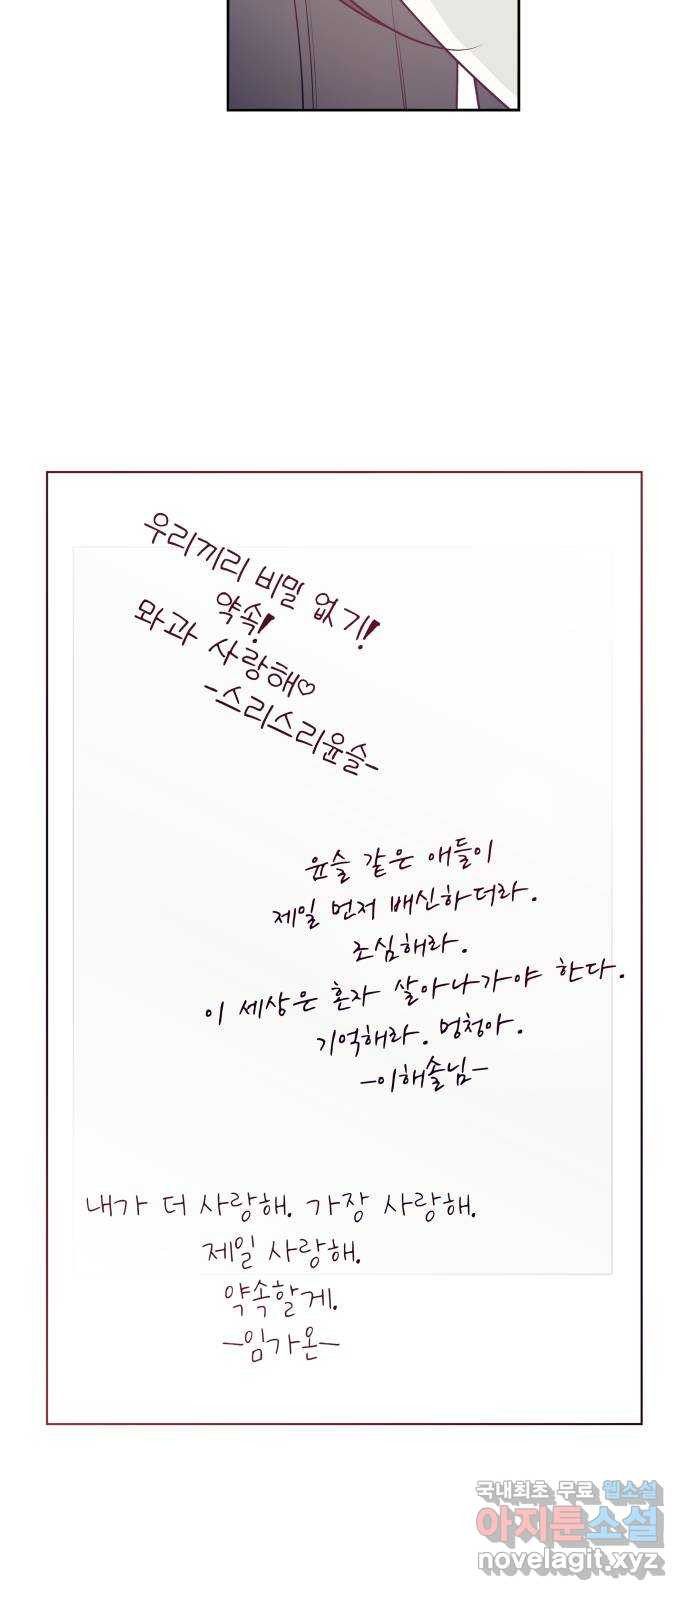 우리끼리 비밀 없기!
약속!
와과 사랑해♡
-스리스리윤슬-
윤슬 같은 애들이
제일 먼저 배신하더라.
조심해라.
이 세상은 혼자 살아나가야 한다.
기억해라. 멍청아.
-이해솔님-
내가 더 사랑해. 가장 사랑해.
제일 사랑해.
약속할게.
-임가온-
국내최초 무료 웹소설
아지툰소설
novelagit.xyz